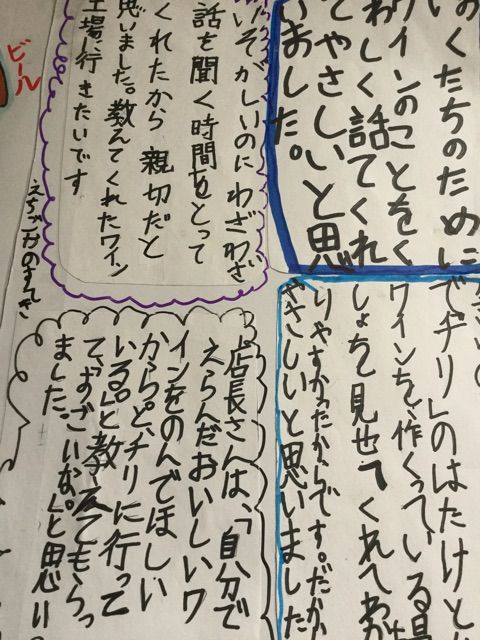 くたちのために
ワインのことをく
わしく話てくれ
てやさしいと思
いました。
いそがしいのにわざわざ
話を聞く時間をとって
くれたから親切だと
思いました。教えてくれたワイン
工場に行きたいです
ビール
でチリ」のはたけと
ワインを、作くっている場
しょを見せてくれてわか
りやすかったからです。だか
やさしいと思いました
店長さんは、「自分で
えらんだおいしいワ
インをのんでほしい
からと、チリに行って
いる。」と教えてもらっ
て、すごいな。」と思い
ました。